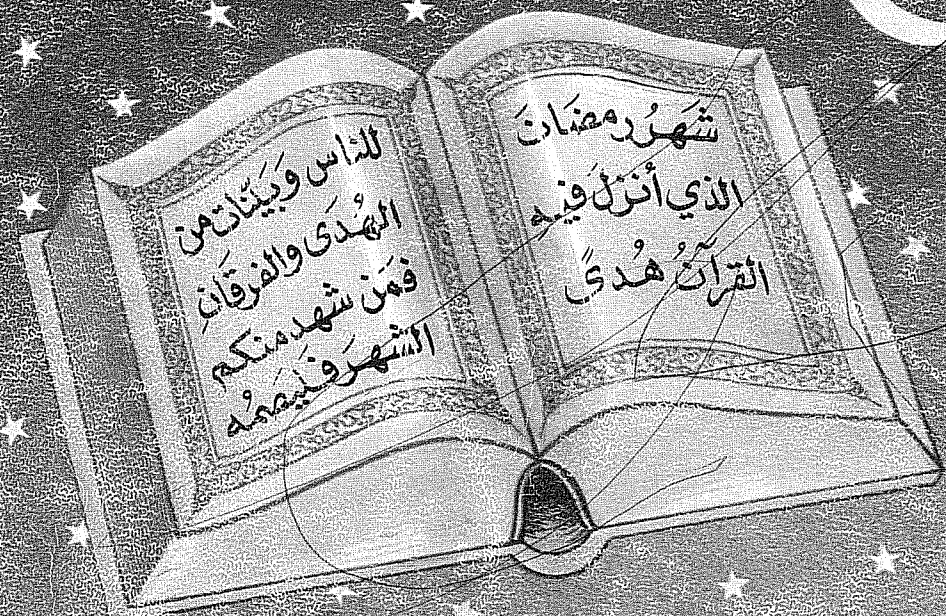 شَهرُ رمضَانَ
الذي أُنزلَ فيه
القرآنُ هُدىً
للناس وَبَيِّنَات من
الهُدَى والفرقَانِ
فمَن شهد منكم
الشهرَ فليَصمُه